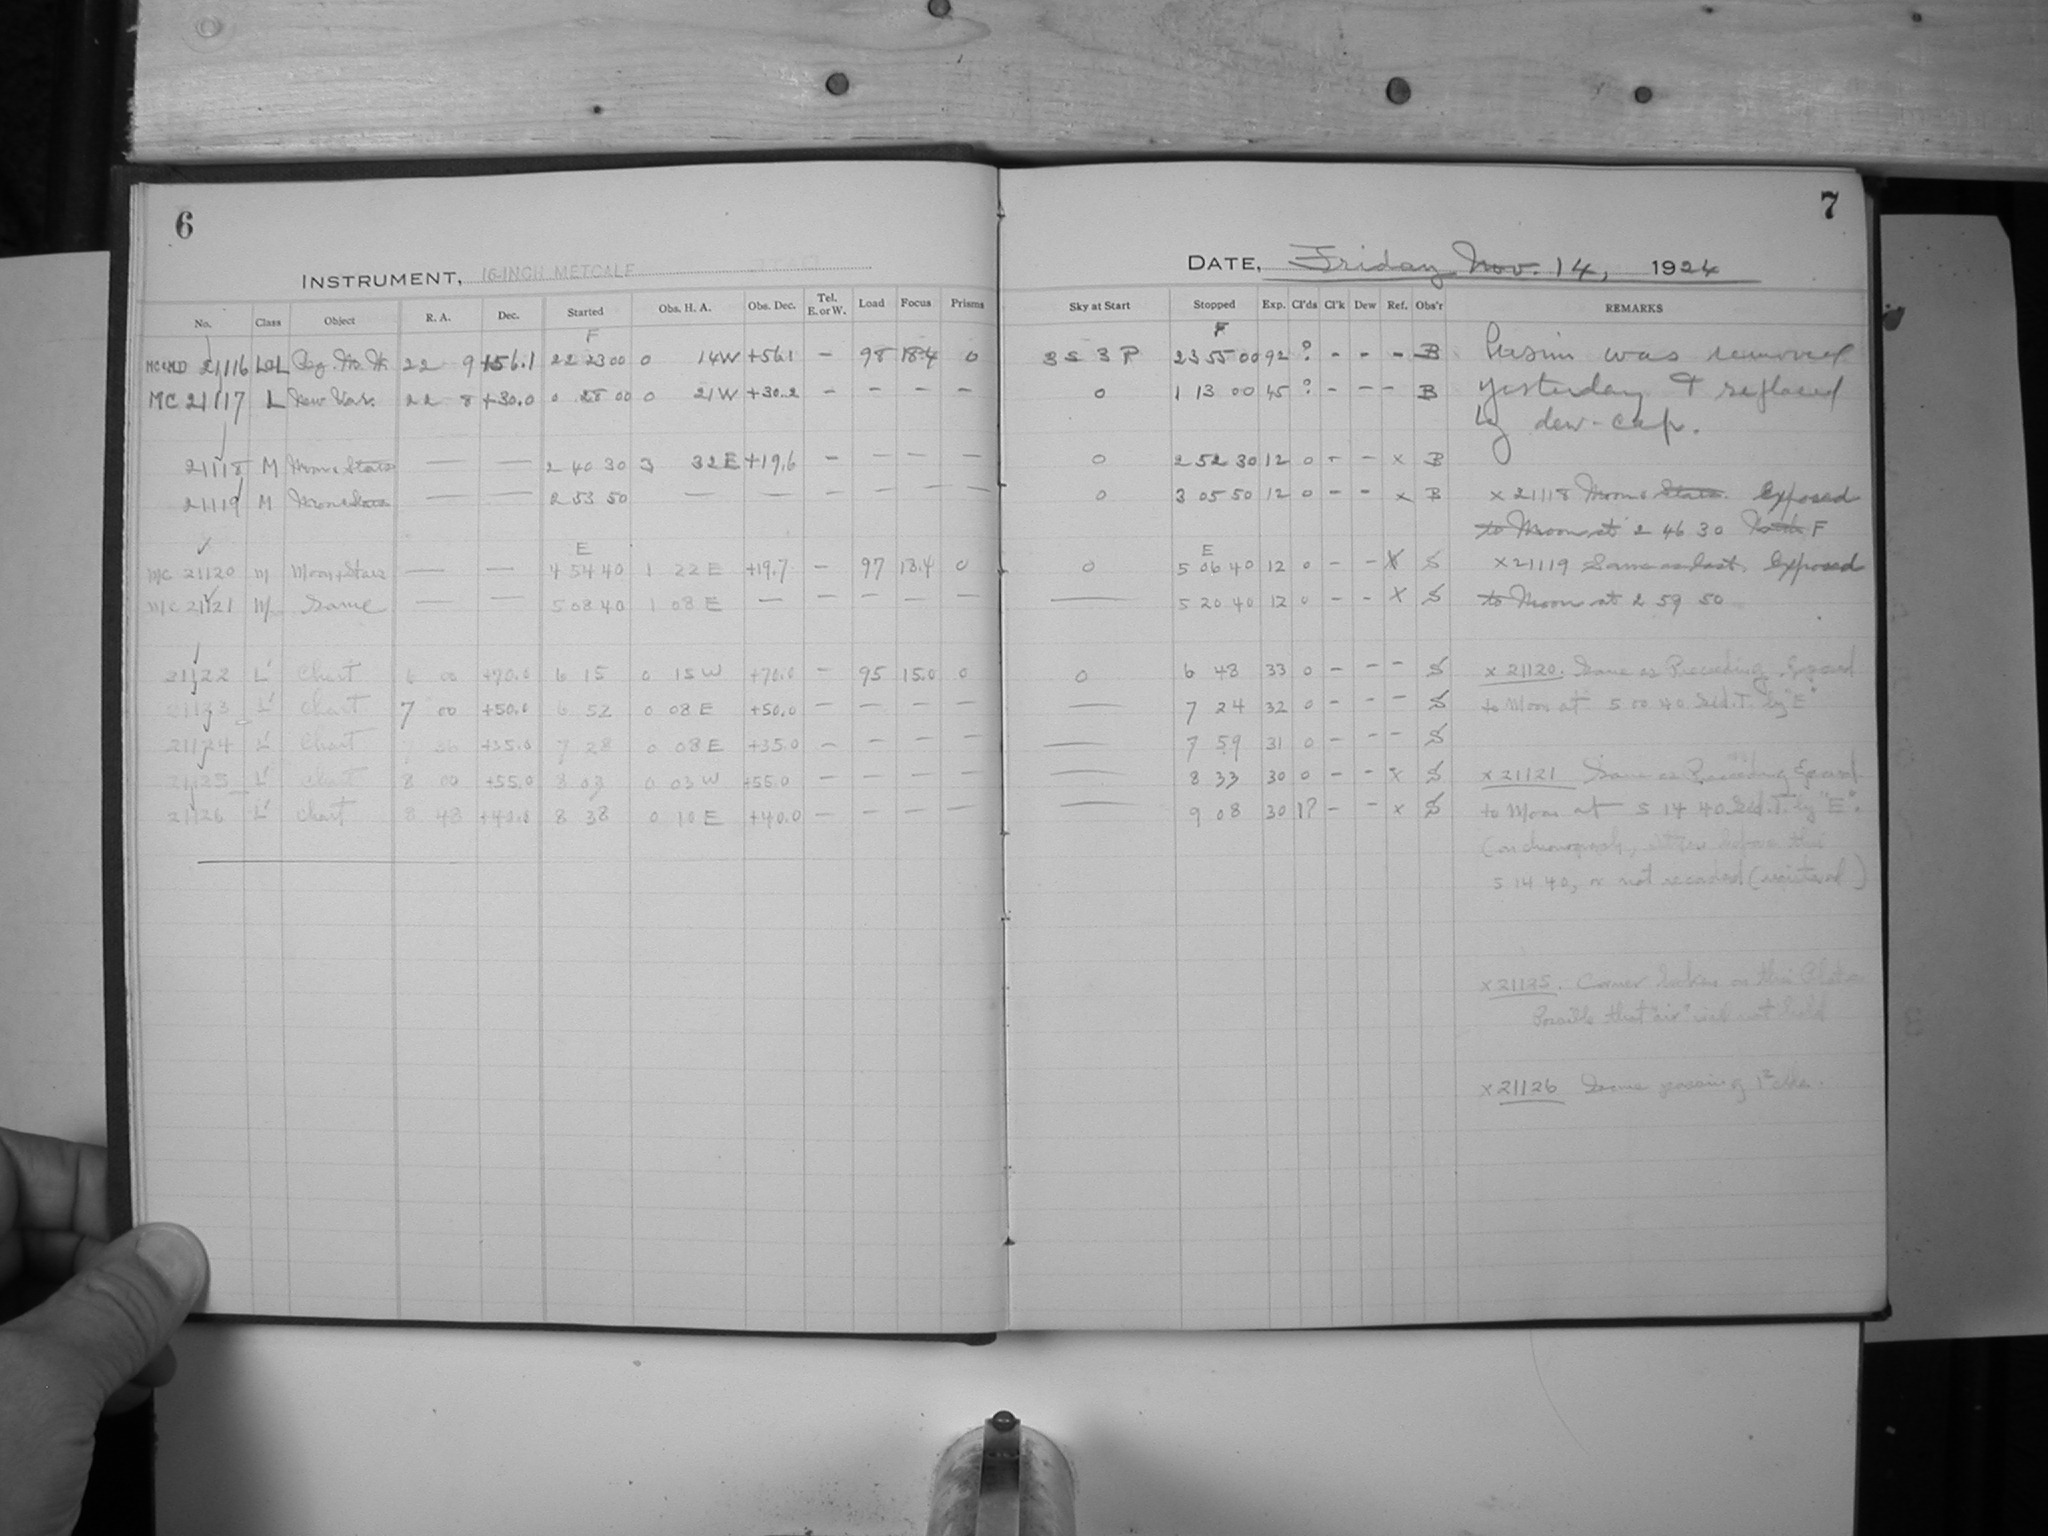 6
INSTRUMENT, 16-INCH METCALF
No. Class Object R. A. Dec. Started Obs. H. A. Obs. Dec. Tel. E. or W. Load Focus Prisms
F
MC&MD 21116 22 9 +56.1 22 23 00 0 14W +56.1 – 98 18.4 0
MC 21117 L New Var. 22 8 +30.0 0 28 00 0 21W +30.2 – – – –
21118 M Moon & Stars — — 2 40 30 3 32E +19.6 – – – –
21119 M Moon & Stars — — 2 53 50 — — – – – –
E
MC 21120 M Moon & Stars — — 4 54 40 1 22E +19.7 – 97 13.4 0
MC 21121 M Same — — 5 08 40 1 08E — – – – –
21122 L' Chart 6 00 +70.0 6 15 0 15W +70.0 – 95 15.0 0
21123 L' Chart 7 00 +50.0 6 52 0 08E +50.0 – – – –
21124 L' Chart 7 36 +35.0 7 28 0 08E +35.0 – – – –
21125 L' Chart 8 00 +55.0 8 03 0 03W +55.0 – – – –
21126 L' Chart 8 48 +40.0 8 38 0 10E +40.0 – – – –
7
DATE, Friday Nov. 14, 1924
Sky at Start Stopped Exp. Cl'ds Cl'k Dew Ref. Obs'r REMARKS
F
3 S 3 P 23 55 00 92 ? – – – B
0 1 13 00 45 ? – – – B
0 2 52 30 12 0 – – x B
0 3 05 50 12 0 – – x B
E
0 5 06 40 12 0 – – x S
— 5 20 40 12 0 – – x S
0 6 48 33 0 – – – S
— 7 24 32 0 – – – S
— 7 59 31 0 – – – S
— 8 33 30 0 – – x S
— 9 08 30 1? – – x S
Prism was removed
yesterday & replaced
by dew-cap.
x 21118 Moon & Stars. Exposed
to Moon at 2 46 30 F
x 21119 Same as last. Exposed
to Moon at 2 59 50
x 21120. Same as Preceding. Exposed
to Moon at 5 00 40 Sid. T. by "E"
x 21121 Same as Preceding Exposed
to Moon at 5 14 40 Sid. T. by "E".
(on chronograph, before this
5 14 40, or not recorded
x 21125. Corner broken on this Plate
Possible that "air" will not hold
x 21126 Some passing